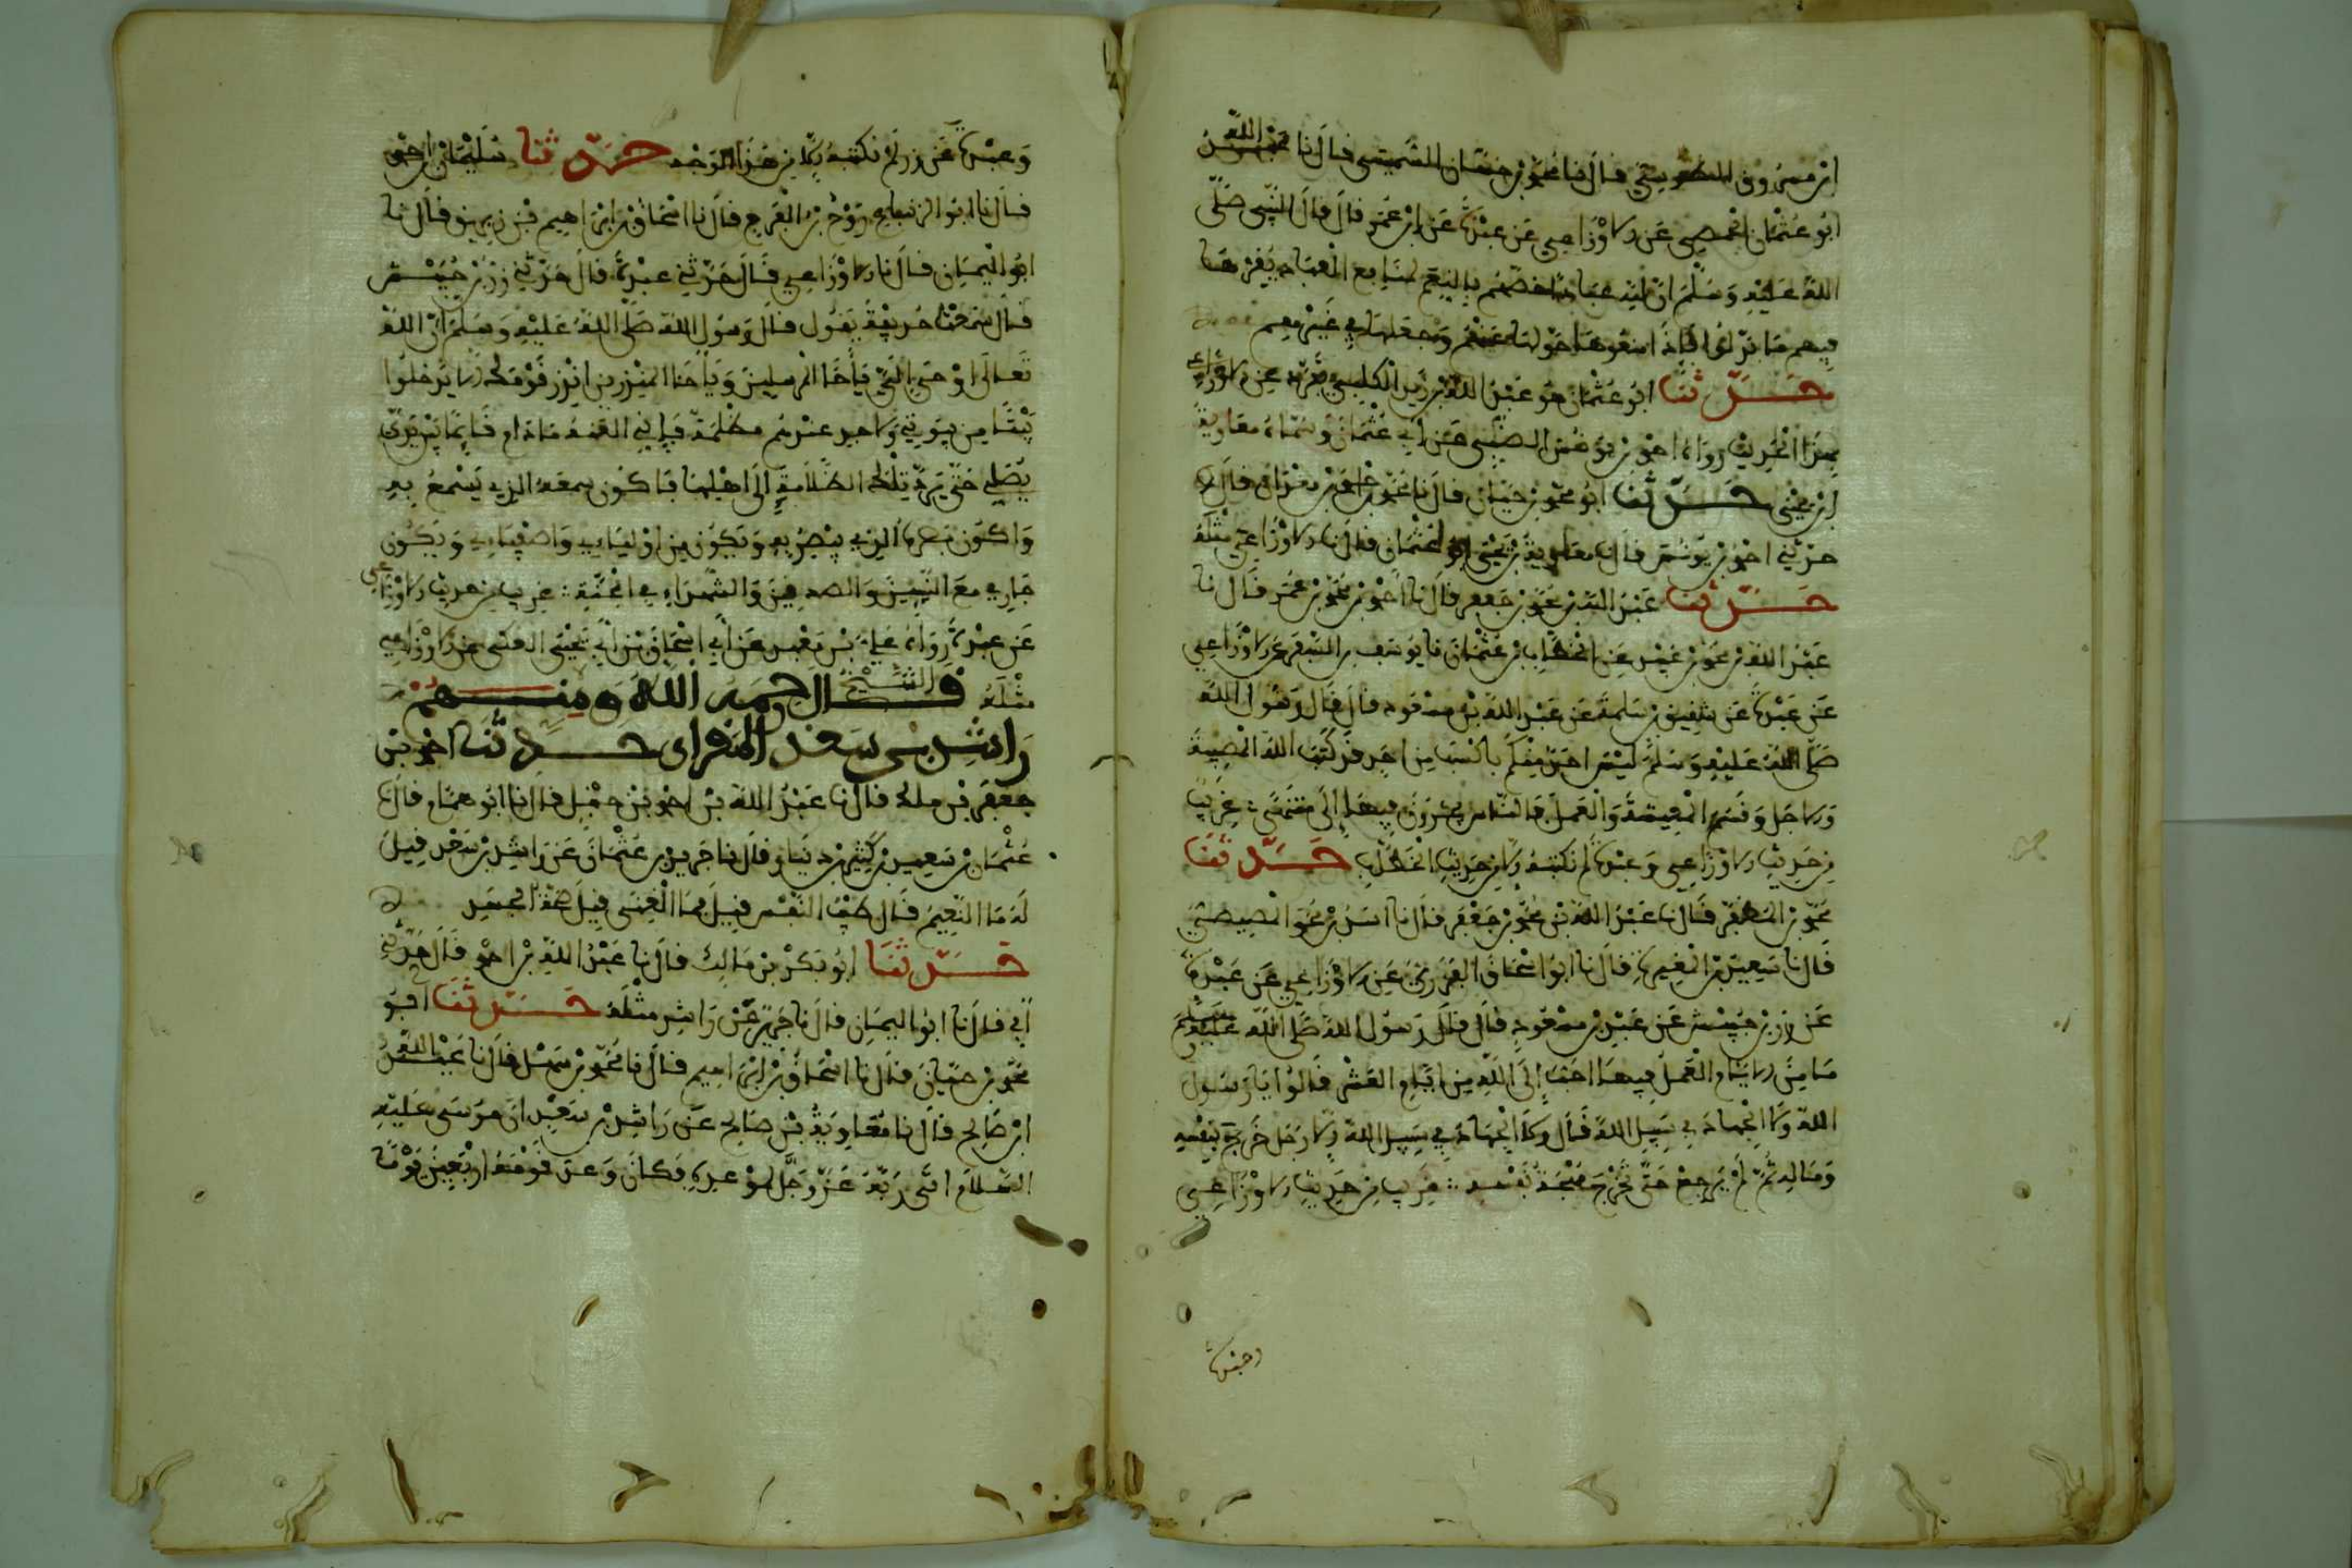 ابن مسروق الطوسي قال نا محمد بن حسان السمتي قال نا عبد الله بن
ابو عثمان الحمصي عن الاوزاعي عن عبدة عن ابن عمر قال قال النبي صلى
الله عليه وسلم ان لله عبادا خصهم بالنعم لمنافع العباد يقرها
فيهم ما بذلوها فاذا منعوها حولها عنهم وجعلها في غيرهم
حدثنا ابو عثمان هو عبد الله بن زيد الكلبي تفرد عن الاوزاعي
بهذا الحديث رواه احمد بن يونس الضبي عن ابي عثمان وسماه معاوية
ابن يحيى حدثنا ابو محمد بن حيان قال نا محمد بن قال نا
حدثني احمد بن يونس قال نا معاوية بن يحيى ابو عثمان قال نا الاوزاعي مثله
حدثنا عبد الله بن محمد بن جعفر قال نا احمد بن محمد بن عمر قال نا
عبد الله بن محمد بن عبيد عن الخطاب بن عثمان نا يوسف بن السفر عن الاوزاعي
عن عبدة عن شقيق بن سلمة عن عبد الله بن مسعود قال قال رسول الله
صلى الله عليه وسلم ليس احد منكم باكسب من احد قد كتب الله المصيبة
والاجل وقسم المعيشة والعمل فالناس يجرون فيها إلى منتهى غريب
من حديث الاوزاعي وعبدة لم نكتبه إلا من حديث الخطاب حدثنا
محمد بن المظفر قال نا عبد الله بن محمد بن جعفر قال نا اسد بن محمد المصيصي
قال نا سعيد بن المغيرة قال نا ابو اسحاق الفزري عن الاوزاعي عن عبدة
عن زر بن حبيش عن عبد بن مسعود قال قال رسول الله صلى الله عليه وسلم
ما من الايام العمل فيها احب إلى الله من ايام العشر قالوا يا رسول
الله ولا الجهاد في سبيل الله قال ولا الجهاد في سبيل الله إلا رجل خرج بنفسه
وماله ثم لم يرجع حتى تخرج مهجة نفسه غريب من حديث الاوزاعي
وعبدة
وعبدة عن زر لم نكتبه إلا من هذا الوجه حدثنا سليمان بن احمد
قال نا ابو الزنباع روح بن الفرج قال نا اسحاق بن ابراهيم بن زبريق قال نا
ابو اليمان قال نا الاوزاعي قال حدثني عبدة قال حدثني زر بن حبيش
قال سمعت حذيفة يقول قال رسول الله صلى الله عليه وسلم ان الله
تعالى اوحى إلي يا اخا المرسلين ويا اخا المنذرين انذر قومك الا يدخلوا
بيتا من بيوتي ولاحد عندهم مظلمة فاني العنه ما دام قائما بين يدي
يصلي حتى يرد تلك الظلامة إلى اهلها فاكون سمعه الذي يسمع به
واكون بصره الذي يبصر به ويكون من اوليائي واصفيائي ويكون
جاري مع النبيين والصديقين والشهداء في الجنة غريب من حديث الاوزاعي
عن عبدة رواه علي بن معبد عن ابي اسحاق بن ابي يحيى العكي عن الاوزاعي
مثله قال الشيخ رحمه الله ومنهم
راشد بن سعد المقراى حدثنا احمد بن
جعفر بن ملك قال نا عبد الله بن احمد بن حنبل قال نا ابو همام قال نا
عثمان بن سعيد بن كثير بن دينار قال نا حريز بن عثمان عن راشد بن سعد قيل
له ما النعيم قال طيب النفس قيل فما الغنى قيل صحة الجسد
حدثنا ابو بكر بن مالك قال نا عبد الله بن احمد قال حدثني
ابي قال نا ابو اليمان قال نا حريز عن راشد مثله حدثنا ابو
محمد بن حيان قال نا اسحاق بن ابراهيم قال نا محمد بن سهل قال نا عبد الله
ابن صالح قال نا معاوية بن صالح عن راشد بن سعد ان موسى عليه
السلام اتى ربه عز وجل لموعده فكان وعد قومه اربعين يوما